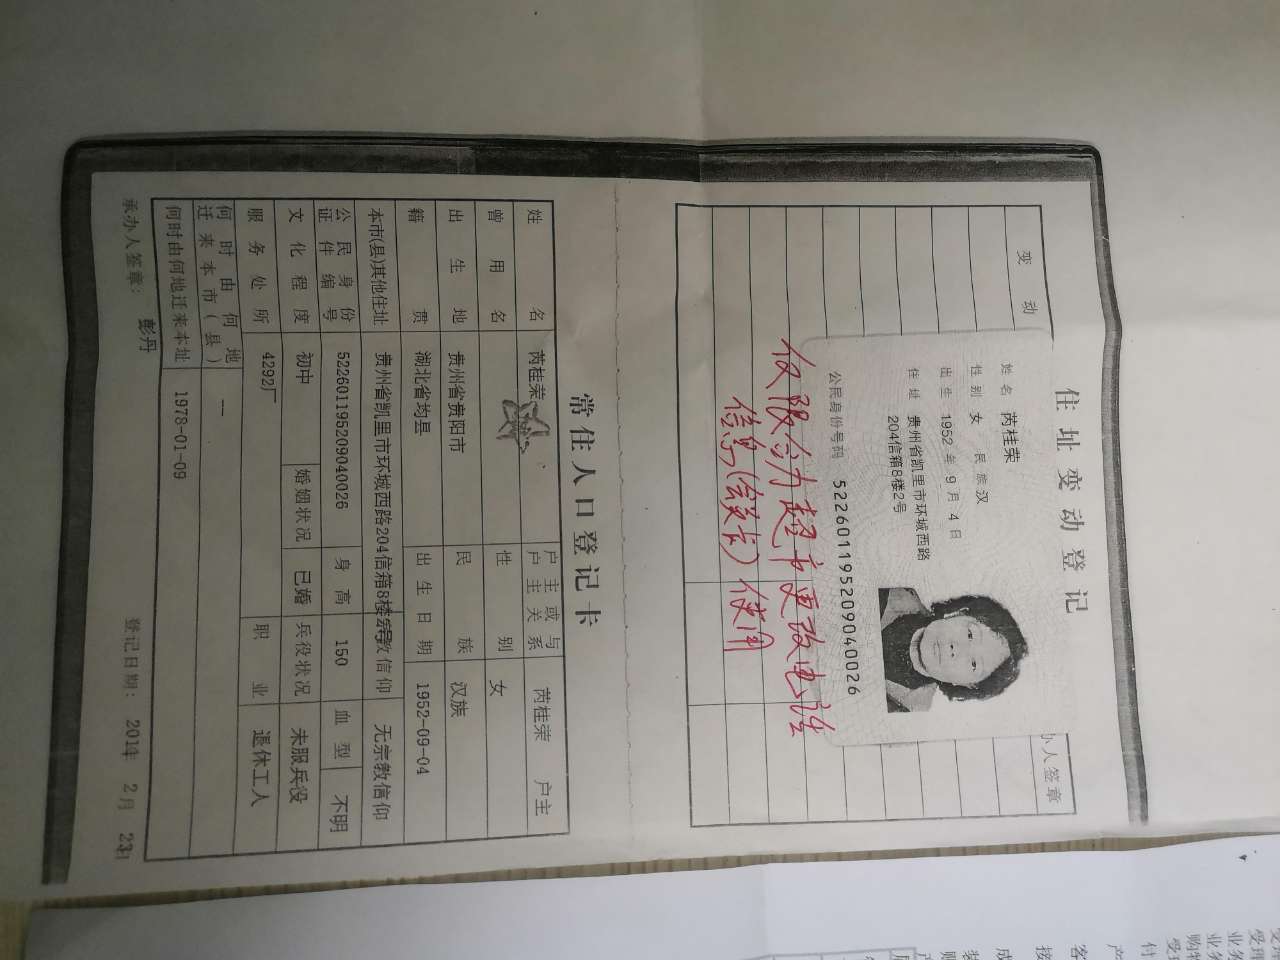 住址变动登记
变动
办人签章
姓名 芮桂荣
性别 女 民族 汉
出生 1952年9月4日
住址 贵州省凯里市环城西路
204信箱8楼2号
公民身份号码 522601195209040026
仅限合力超市更改电话
信息(会员卡)使用
常住人口登记卡
姓名 芮桂荣 户主或与户主关系 芮桂荣 户主
曾用名 性别 女
出生地 贵州省贵阳市 民族 汉族
籍贯 湖北省均县 出生日期 1952-09-04
本市(县)其他住址 贵州省凯里市环城西路204信箱8楼 信仰 无宗教信仰
公民身份证件编号 522601195209040026 身高 150 血型 不明
文化程度 初中 婚姻状况 已婚 兵役状况 未服兵役
服务处所 4292厂 职业 退休工人
何时由何地迁来本市(县) —
何时由何地迁来本址 1978-01-09
承办人签章: 彭丹 登记日期: 2014年2月